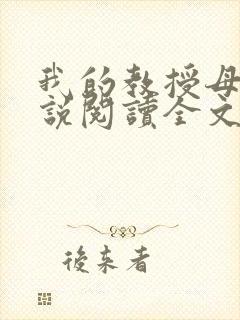 我的教授母
說閱讀全文
後来者